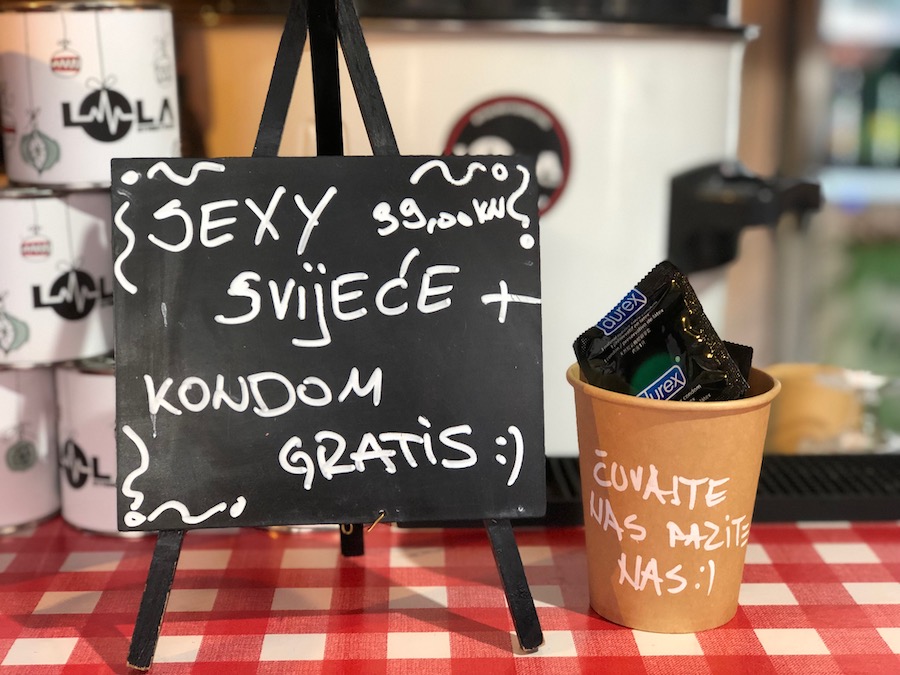 LOLA
LOLA
LOLA
SEXY 39,00KN
SVIJEĆE +
KONDOM
GRATIS :)
durex
durex
ČUVAJTE
NAS PAZITE
NAS :)